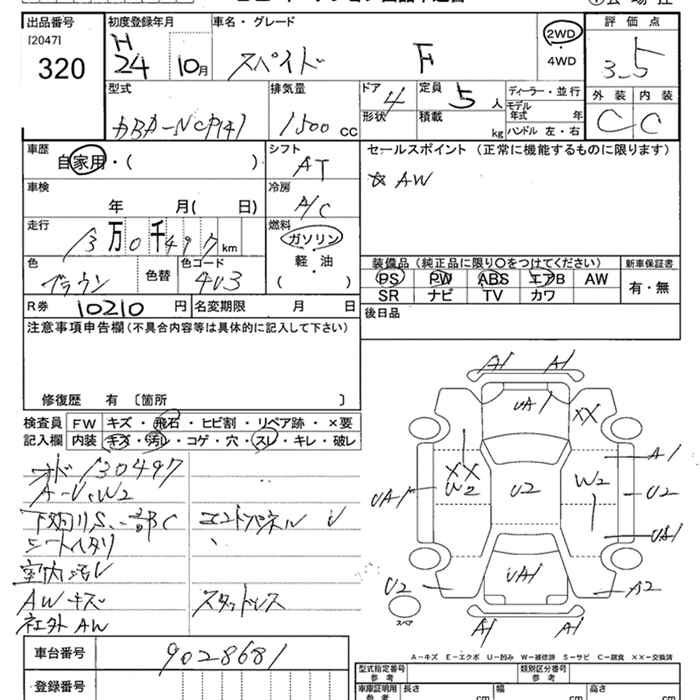 出品番号 初度登録年月 車名・グレード 2WD 評価点
[2047] H ・
320 24 10月 スペイド F 4WD 3.5
型式 排気量 ドア 定員 ディーラー・並行 外装 内装
DBA-NCP141 1500 CC 4 5 人 モデル年式 年 C C
形状 積載 kg ハンドル 左・右
車歴 シフト セールスポイント (正常に機能するものに限ります)
自家用・( ) AT ☆ AW
車検 冷房
年 月( 日) A/C
走行 燃料
13万0千497km ガソリン
色 色替 色コード 軽・油 装備品 (純正品に限り○をつけてください) 新車保証書
ブラウン 4U3 ( ) PS PW ABS エアB AW 有・無
SR ナビ TV カワ
R券 10210 円 名変期限 月 日 後日品
注意事項申告欄 (不具合内容等は具体的に記入して下さい)
修復歴 有 〔箇所 〕
検査員 FW キズ・飛石・ヒビ割・リペア跡・×要
記入欄 内装 キズ・汚レ・コゲ・穴・スレ・キレ・破レ
オド 130497
A-U.W2
下廻りS. BC エンドパネル U
シートヘタリ
室内汚レ
AWキズ スタッドレス
社外AW
A1 A1
UA1 XX
XX A1
UA1 W2 U2 W2 U2
US1
U2 UA1 A2
スペア A1 A1
A-キズ E-エクボ U-凹み W-補修跡 S-サビ C-腐食 XX-交換済
車台番号 9028681 型式指定番号 類別区分番号
参考 参考
登録番号 車庫証明用 長さ 幅 高さ
参考 cm cm cm